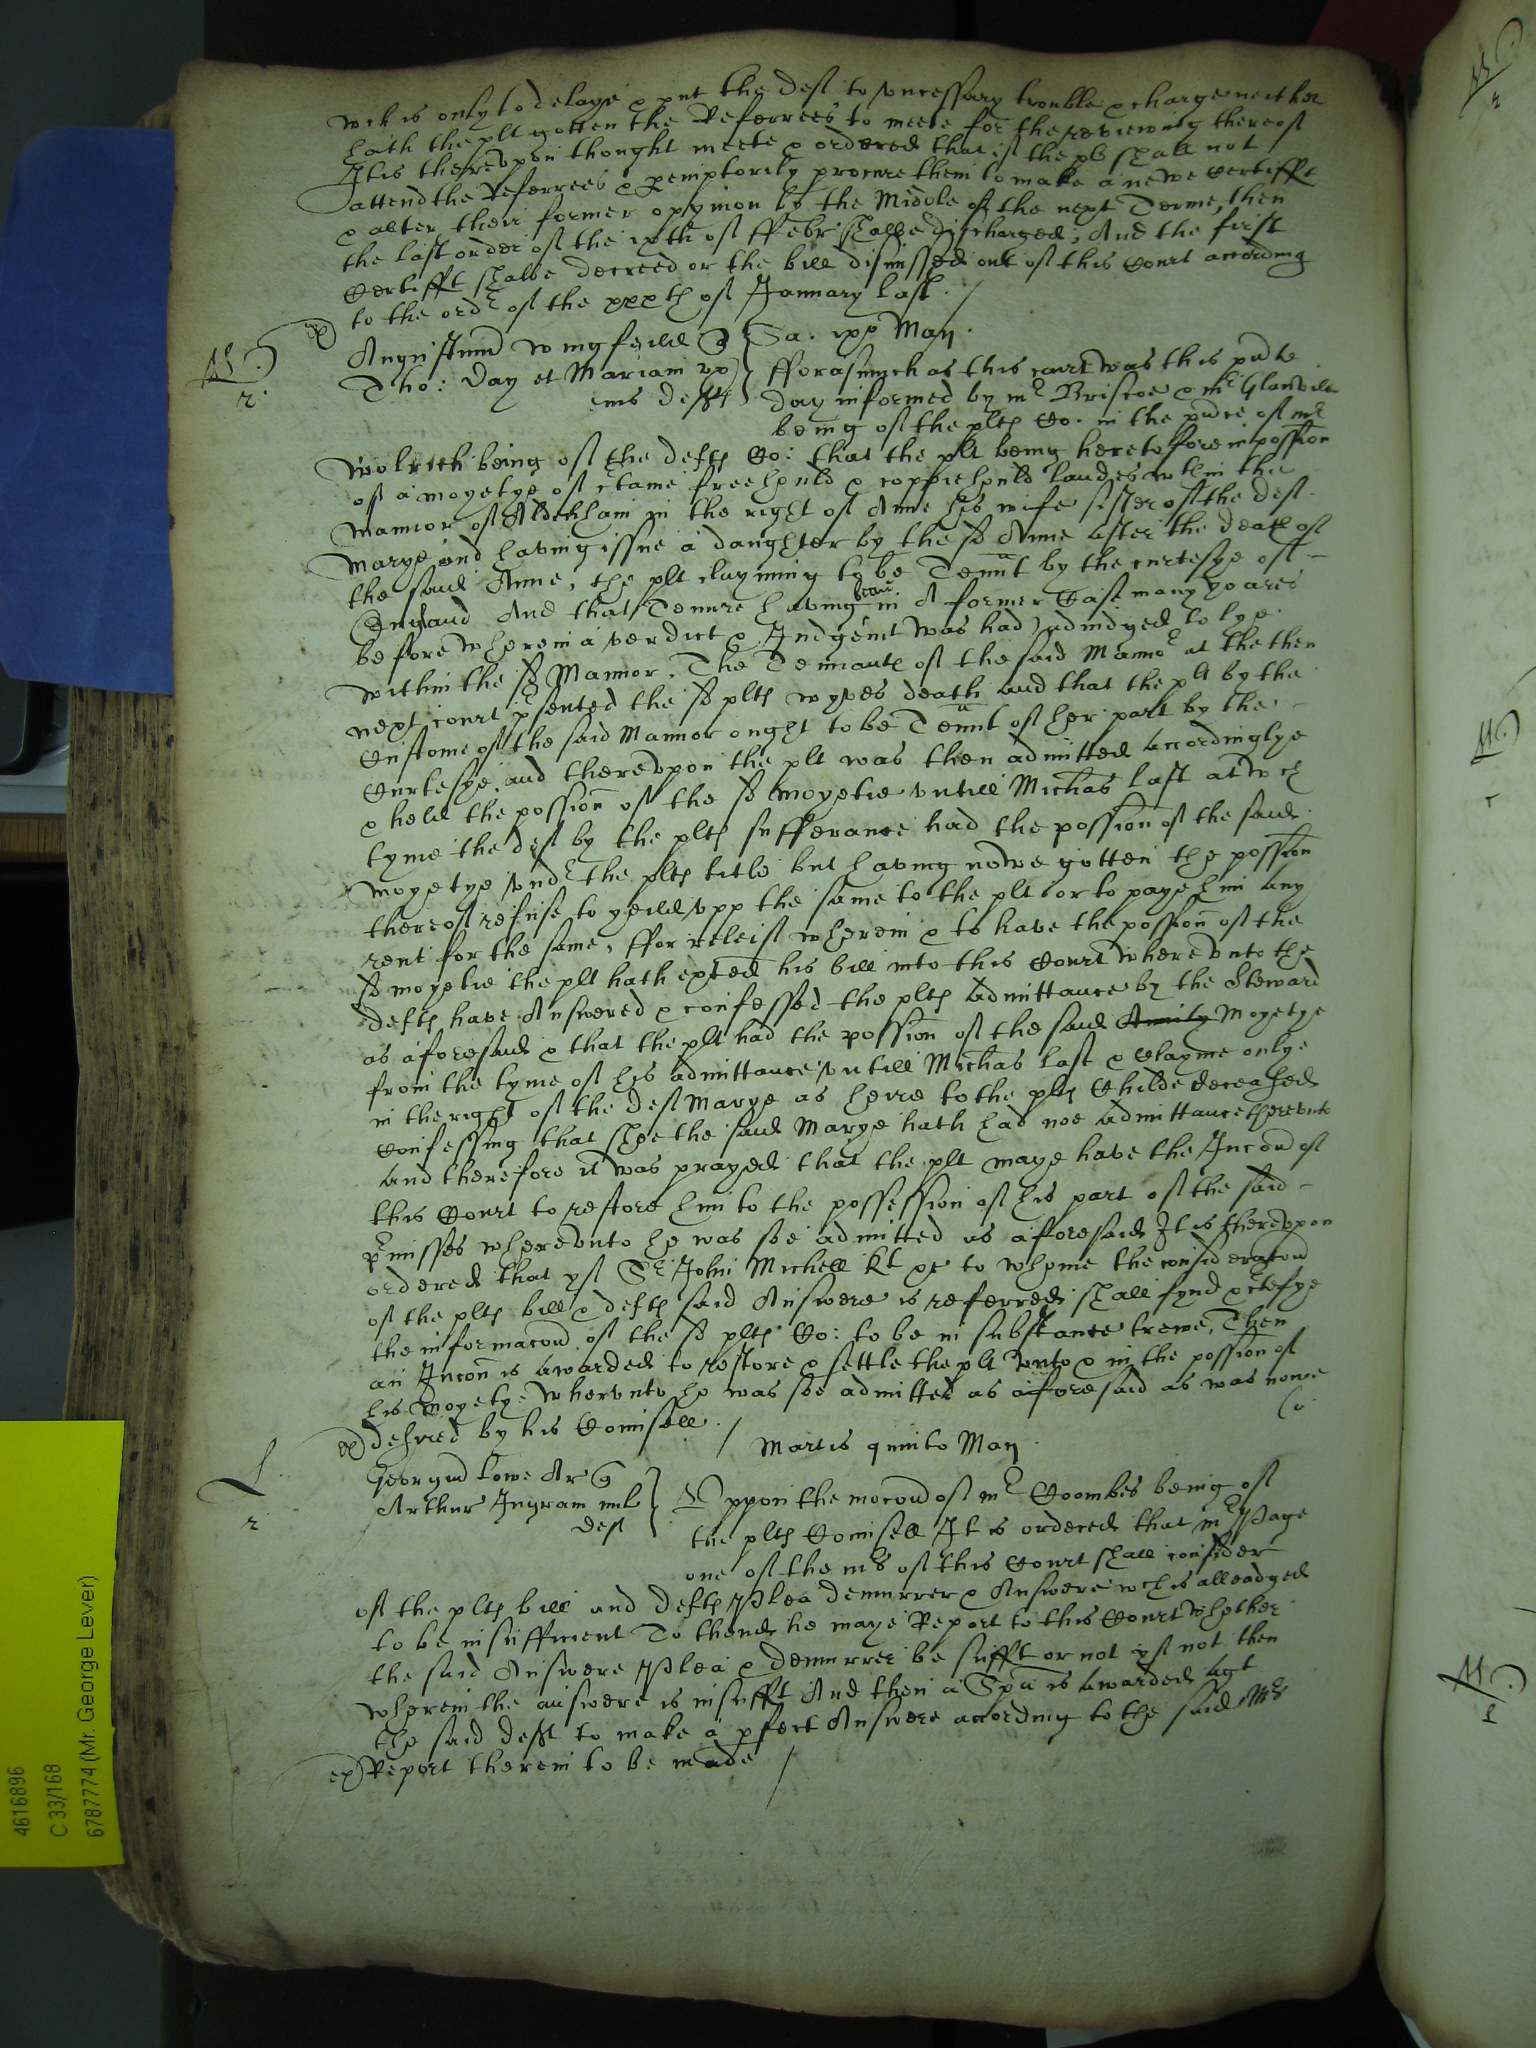 wch is only to delaye & put the deft to vncessary trouble & charge neither
hath the plt gotten the Referrees to meete for the reviewing thereof
It is therevpon thought meete & ordered that if the plt shall not
attend the Referrees & pemptorily procure them to make a newe Certifft
& alter their former opynion by the Middle of the next Terme, then
the last order of the ixth of ffebr shalbe discharged, And the first
Certifft shalbe decreed or the bill dismissed out of this Court according
to the ordr of the xxxth of January last /
Augustinu wingfeild Sa. May
Tho: Day et Mariam vx
eius defts
fforasmuch as this court was this pnte
day informed by mr Briscoe & mr Glanvile
being of the plts Co: in the pnce of mr
Wolrich being of the defts Co: that the plt being heretofore in possion
of a moyetye of ctaine freehould & coppiehould landes wthin the
Mannor of Aldenham in the right of Anne his wife sister of the deft
Marye and having issue a daughter by the sd Anne After the death of
the said Anne, the plt clayming to be Tennt by the curtesye of
England And that Tenure having been in A former Case many yeares
before wherein a verdict & Iudgemt was had adiudged to lye
within the sd Mannor. The Tennants of the said Mannor at the then
next court psented the sd plts wyves death and that the plt by the
Custome of the said Mannor ought to be Tennt of her part by the
Curtesye, and therevpon the plt was then admitted accordinglye
& held the possion of the sd moyetie vntill Michas last at wch
tyme the deft by the plts sufferance had the possion of the said
moyetye vndr the plts title but having nowe gotten the possion
thereof refuse to yeild vpp the same to the plt or to paye him any
rent for the same, ffor releif wherein & to have the possion of the
sd moyetie the plt hath exhted his bill into this Court wherevnto the
defts have Answered & confessed the plts admittance by the Steward
as aforesaid & that the plt had the possion of the said Moyetye
from the tyme of his admittance vntill Michas last & Clayme onlye
in the right of the deft Marye as heire to the plts Childe deceased
Confessing that shee the said Marye hath had noe admittance therevnto
And therefore it was prayed that the plt maye have the Iniuncon of
this Court to restore him to the possession of his part of the said
pmisses wherevnto he was soe admitted as aforesaid It is therevpon
ordered that yf Sr John Michell kt &c to whome the consideracon
of the plts bill & defts said Answere is referred shall fynd & ctefye
the informacon of the sd plts Co: to be in substance trewe, Then
an Iniuncon is awarded to restore & settle the plt vnto & in the possion of
his Moyetye whervnto he was soe admitted as aforesaid as was nowe
desired by his Counsell /
Martis quinto May
Georgiu lowe Ar
Arthur Ingram mil
deft
Vppon the mocon of mr Coombes being of
the plts Counsell It is ordered that mr Page
one of the mrs of this Court shall consider
of the plts bill and defts Plea demurrer & Answere wch is alleadged
to be insufficient To thend he maye Report to this Court whether
the said Answere Plea & demurrer be sufft or not yf not then
wherein the answere is insufft And then a Spa is awarded agt
the said deft to make a pfect Answere according to the said Mrs
Report therein to be made /
4616896
C 33/168
6787774 (Mr. George Lever)